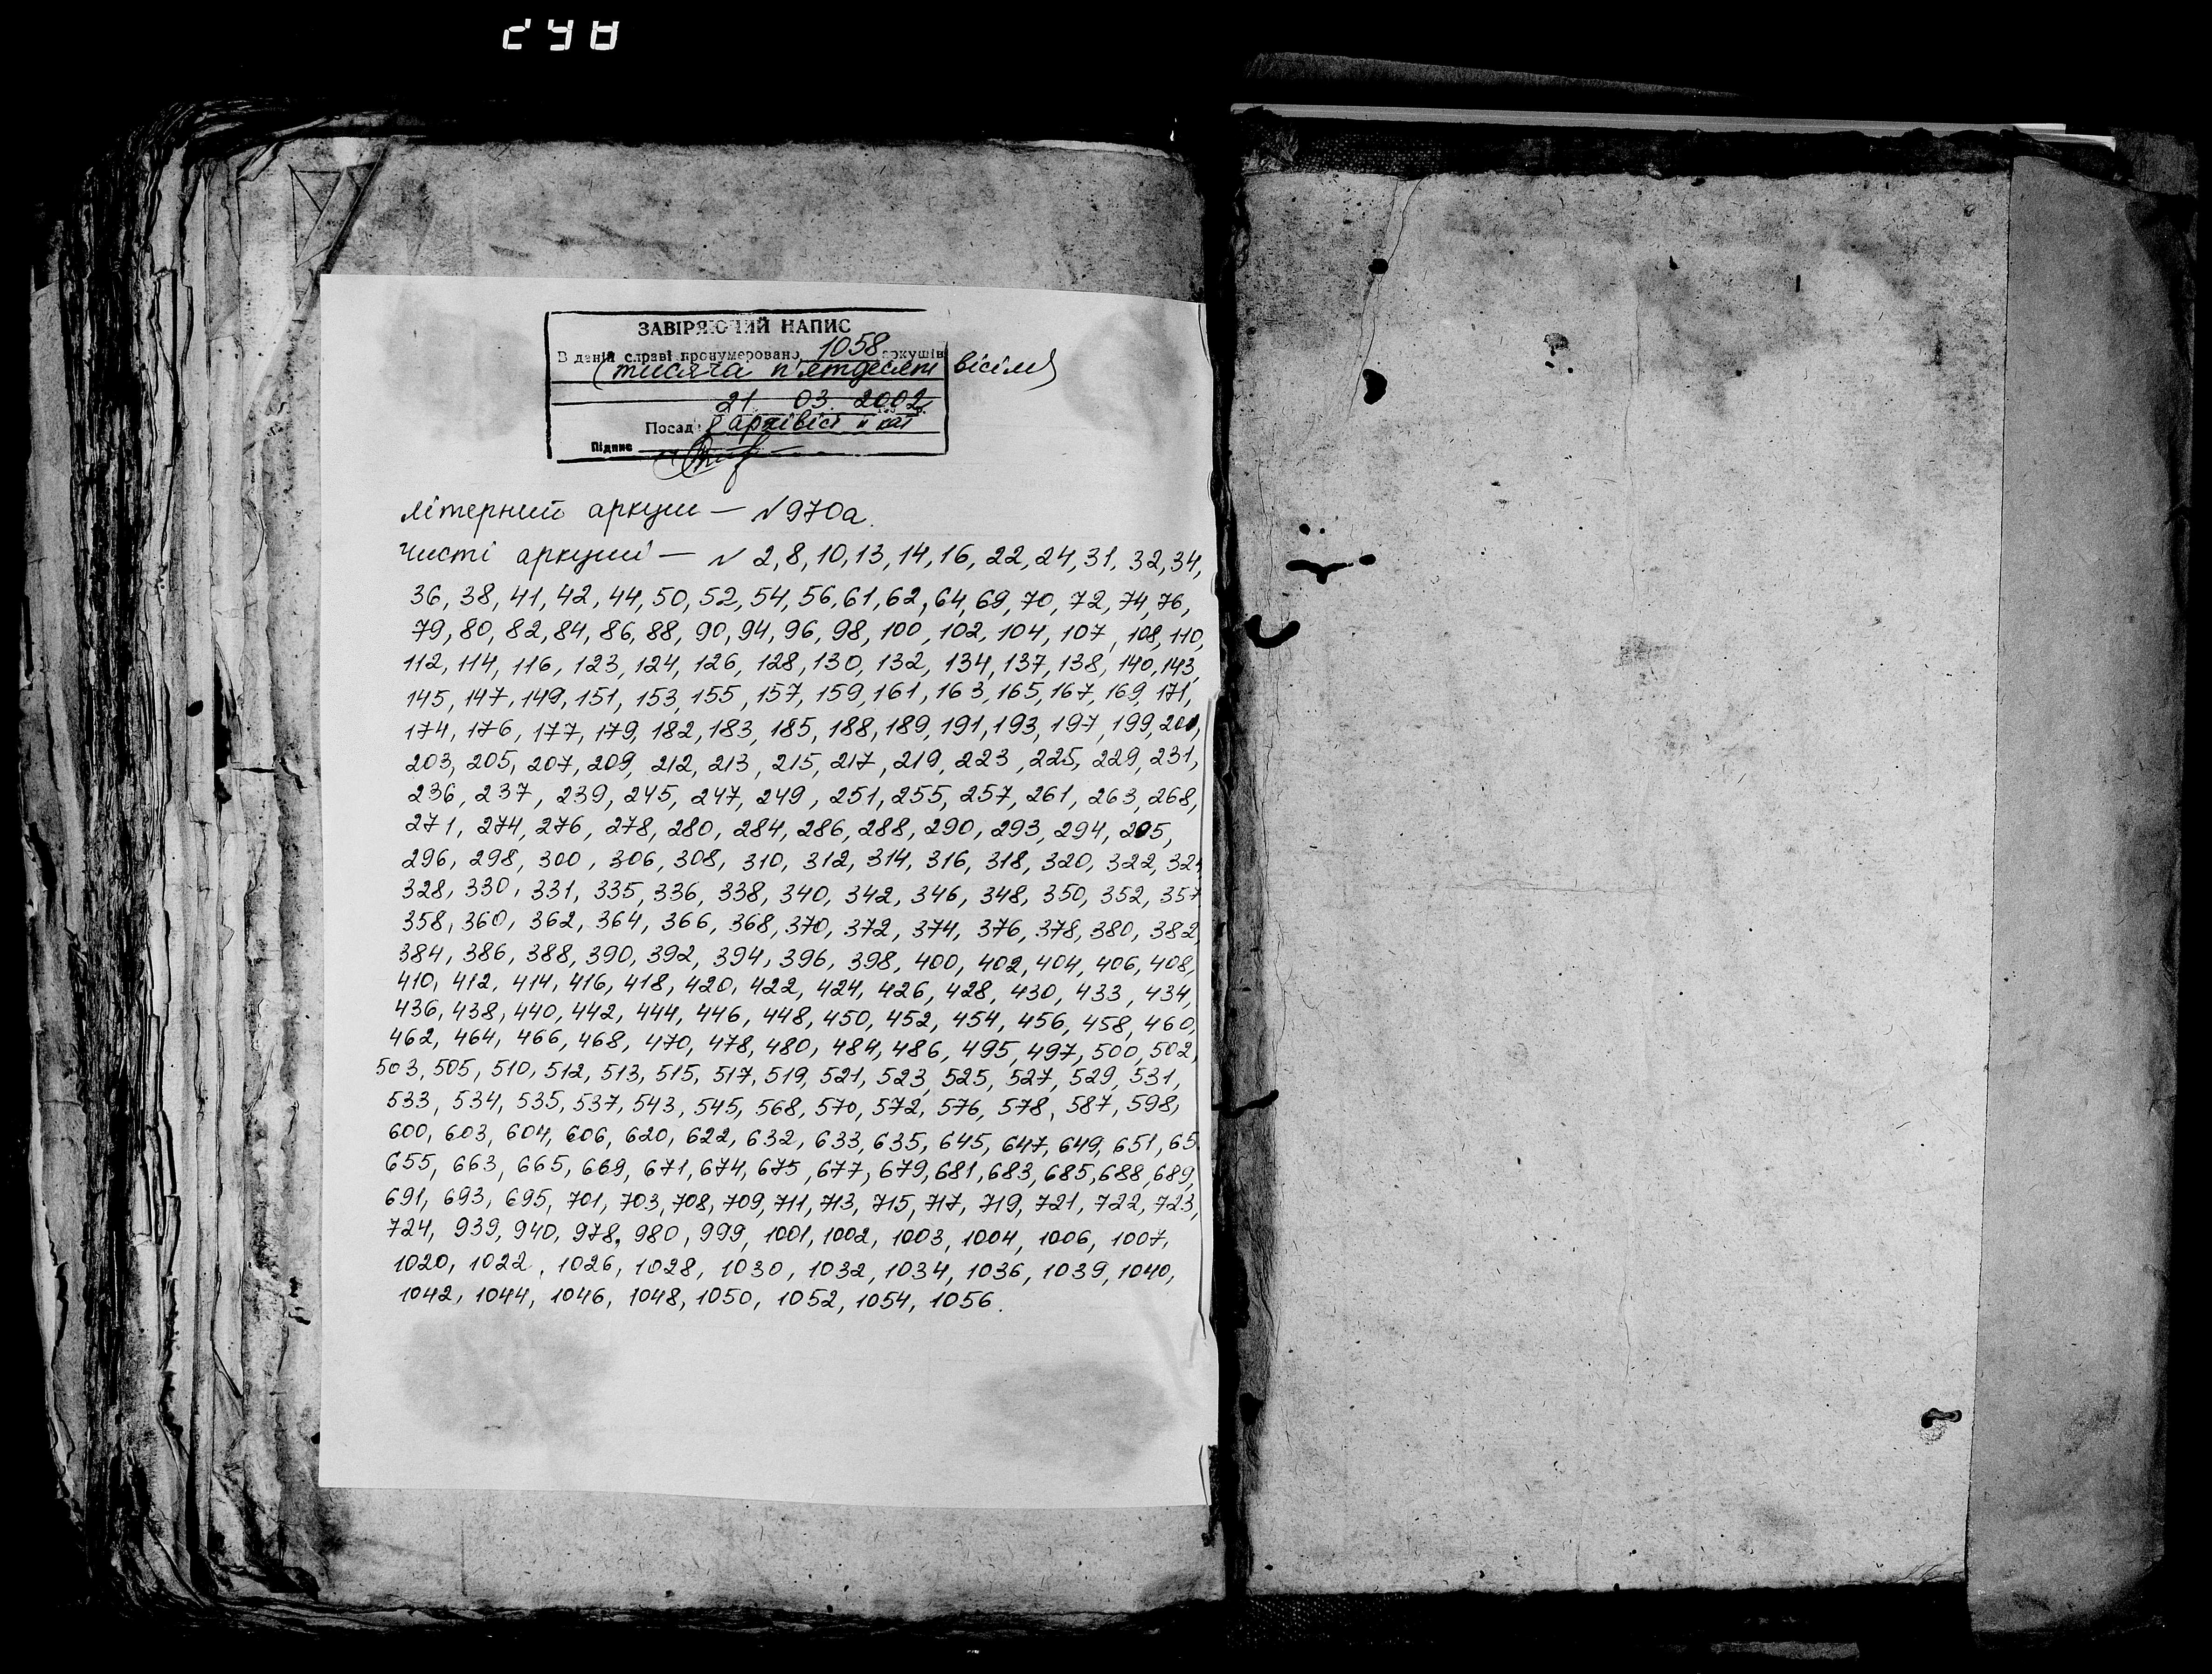 298
ЗАВІРЯЮЧИЙ НАПИС
В даній справі пронумеровано 1058 аркушів
(тисяча п'ятдесят вісім)
21. 03. 2002
Посада архівіст II кат
Підпис
літерний аркуш — № 970а.
чисті аркуші — № 2, 8, 10, 13, 14, 16, 22, 24, 31, 32, 34,
36, 38, 41, 42, 44, 50, 52, 54, 56, 61, 62, 64, 69, 70, 72, 74, 76,
79, 80, 82, 84, 86, 88, 90, 94, 96, 98, 100, 102, 104, 107, 108, 110,
112, 114, 116, 123, 124, 126, 128, 130, 132, 134, 137, 138, 140, 143,
145, 147, 149, 151, 153, 155, 157, 159, 161, 163, 165, 167, 169, 171,
174, 176, 177, 179, 182, 183, 185, 188, 189, 191, 193, 197, 199,
203, 205, 207, 209, 212, 213, 215, 217, 219, 223, 225, 229, 231,
236, 237, 239, 245, 247, 249, 251, 255, 257, 261, 263, 268,
271, 274, 276, 278, 280, 284, 286, 288, 290, 293, 294, 295,
296, 298, 300, 306, 308, 310, 312, 314, 316, 318, 320, 322, 324
328, 330, 331, 335, 336, 338, 340, 342, 346, 348, 350, 352, 357
358, 360, 362, 364, 366, 368, 370, 372, 374, 376, 378, 380, 382,
384, 386, 388, 390, 392, 394, 396, 398, 400, 402, 404, 406, 408,
410, 412, 414, 416, 418, 420, 422, 424, 426, 428, 430, 433, 434,
436, 438, 440, 442, 444, 446, 448, 450, 452, 454, 456, 458, 460,
462, 464, 466, 468, 470, 478, 480, 484, 486, 495, 497, 500, 502,
503, 505, 510, 512, 513, 515, 517, 519, 521, 523, 525, 527, 529, 531,
533, 534, 535, 537, 543, 545, 568, 570, 572, 576, 578, 587, 598,
600, 603, 604, 606, 620, 622, 632, 633, 635, 645, 647, 649, 651, 65
655, 663, 665, 669, 671, 674, 675, 677, 679, 681, 683, 685, 688, 689,
691, 693, 695, 701, 703, 708, 709, 711, 713, 715, 717, 719, 721, 722, 723,
724, 939, 940, 978, 980, 999, 1001, 1002, 1003, 1004, 1006, 1007,
1020, 1022, 1026, 1028, 1030, 1032, 1034, 1036, 1039, 1040,
1042, 1044, 1046, 1048, 1050, 1052, 1054, 1056.